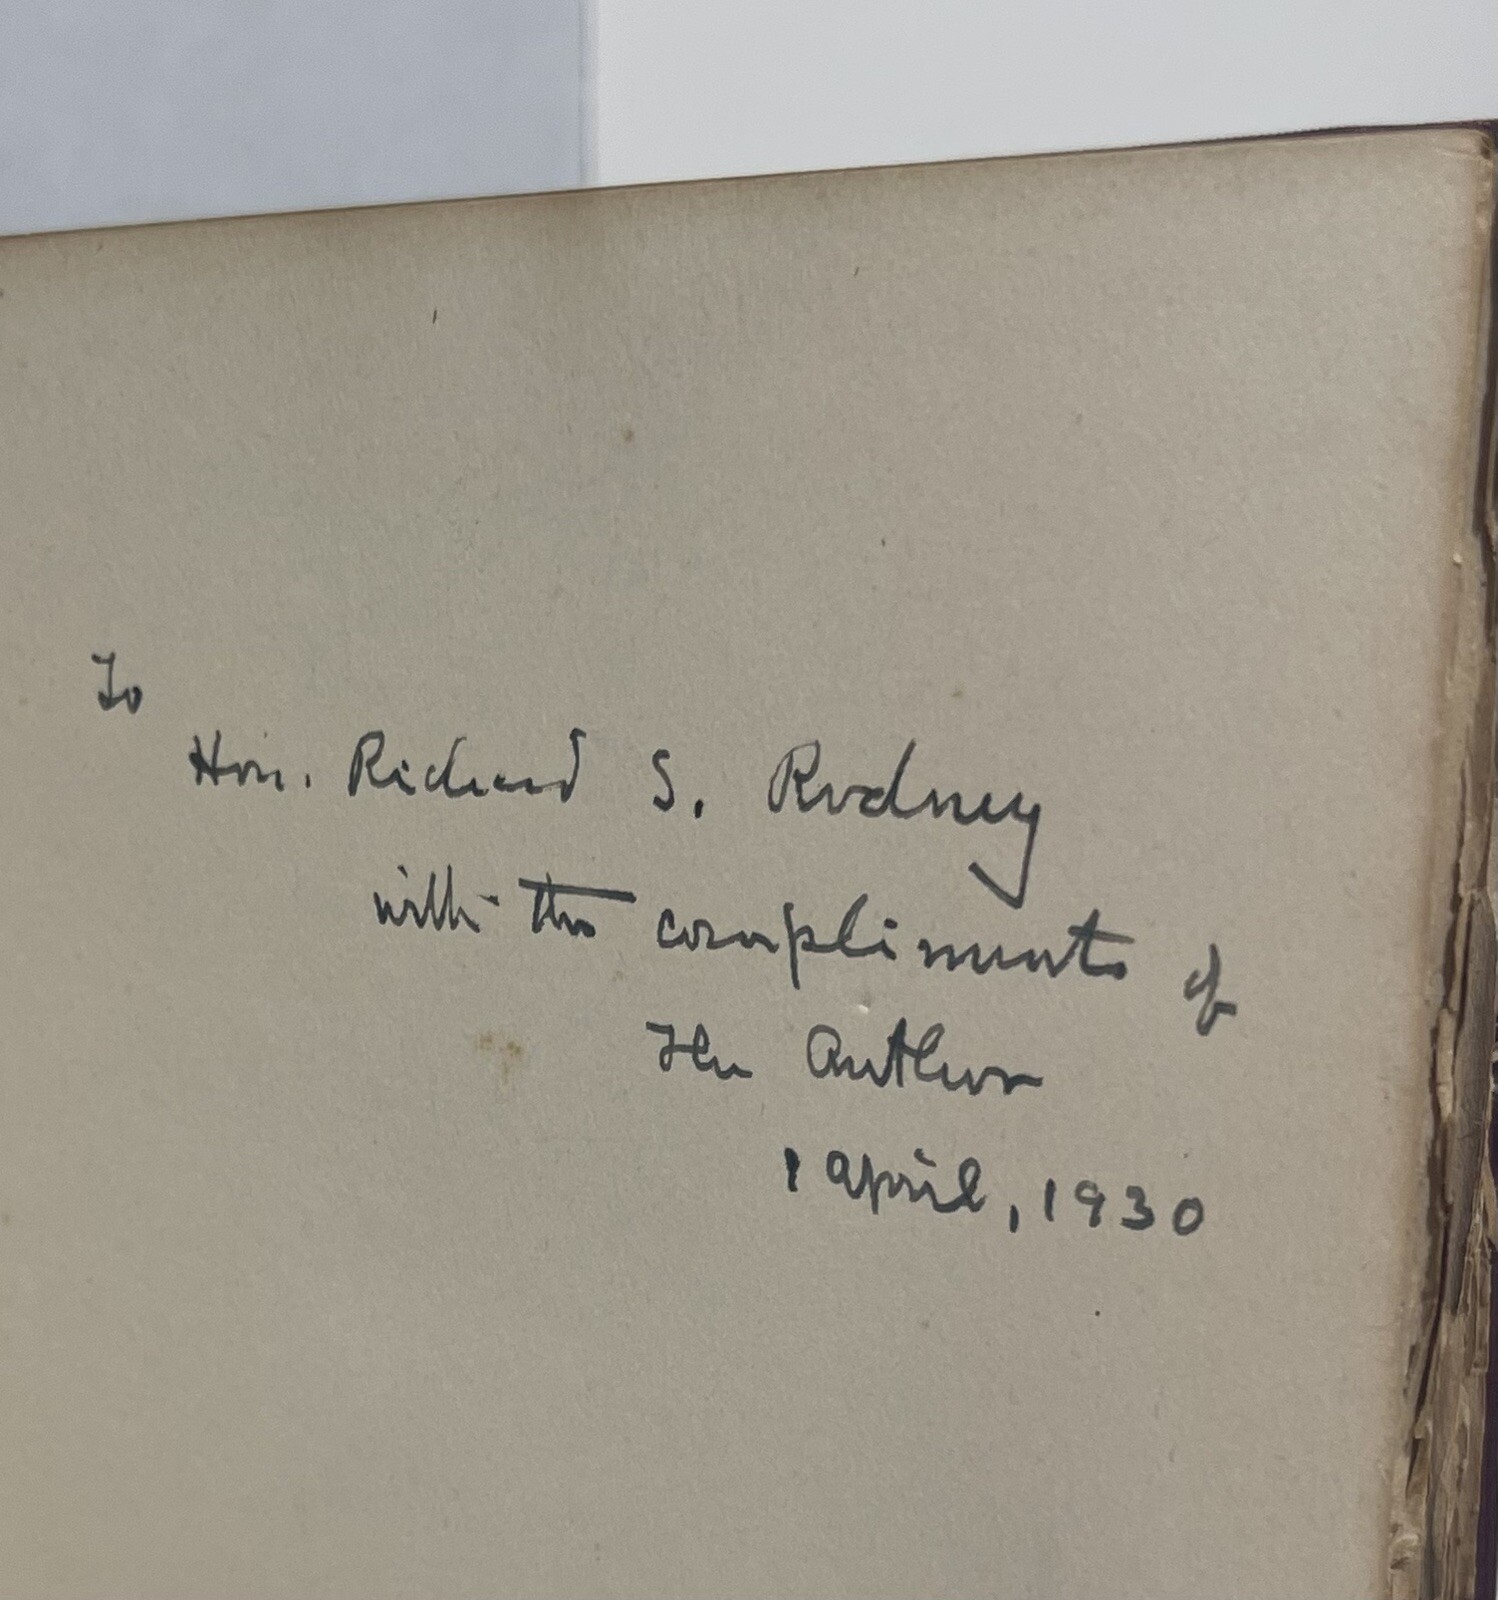 To
Hon. Richard S. Rodney
with the compliments of
The Author
1 April, 1930